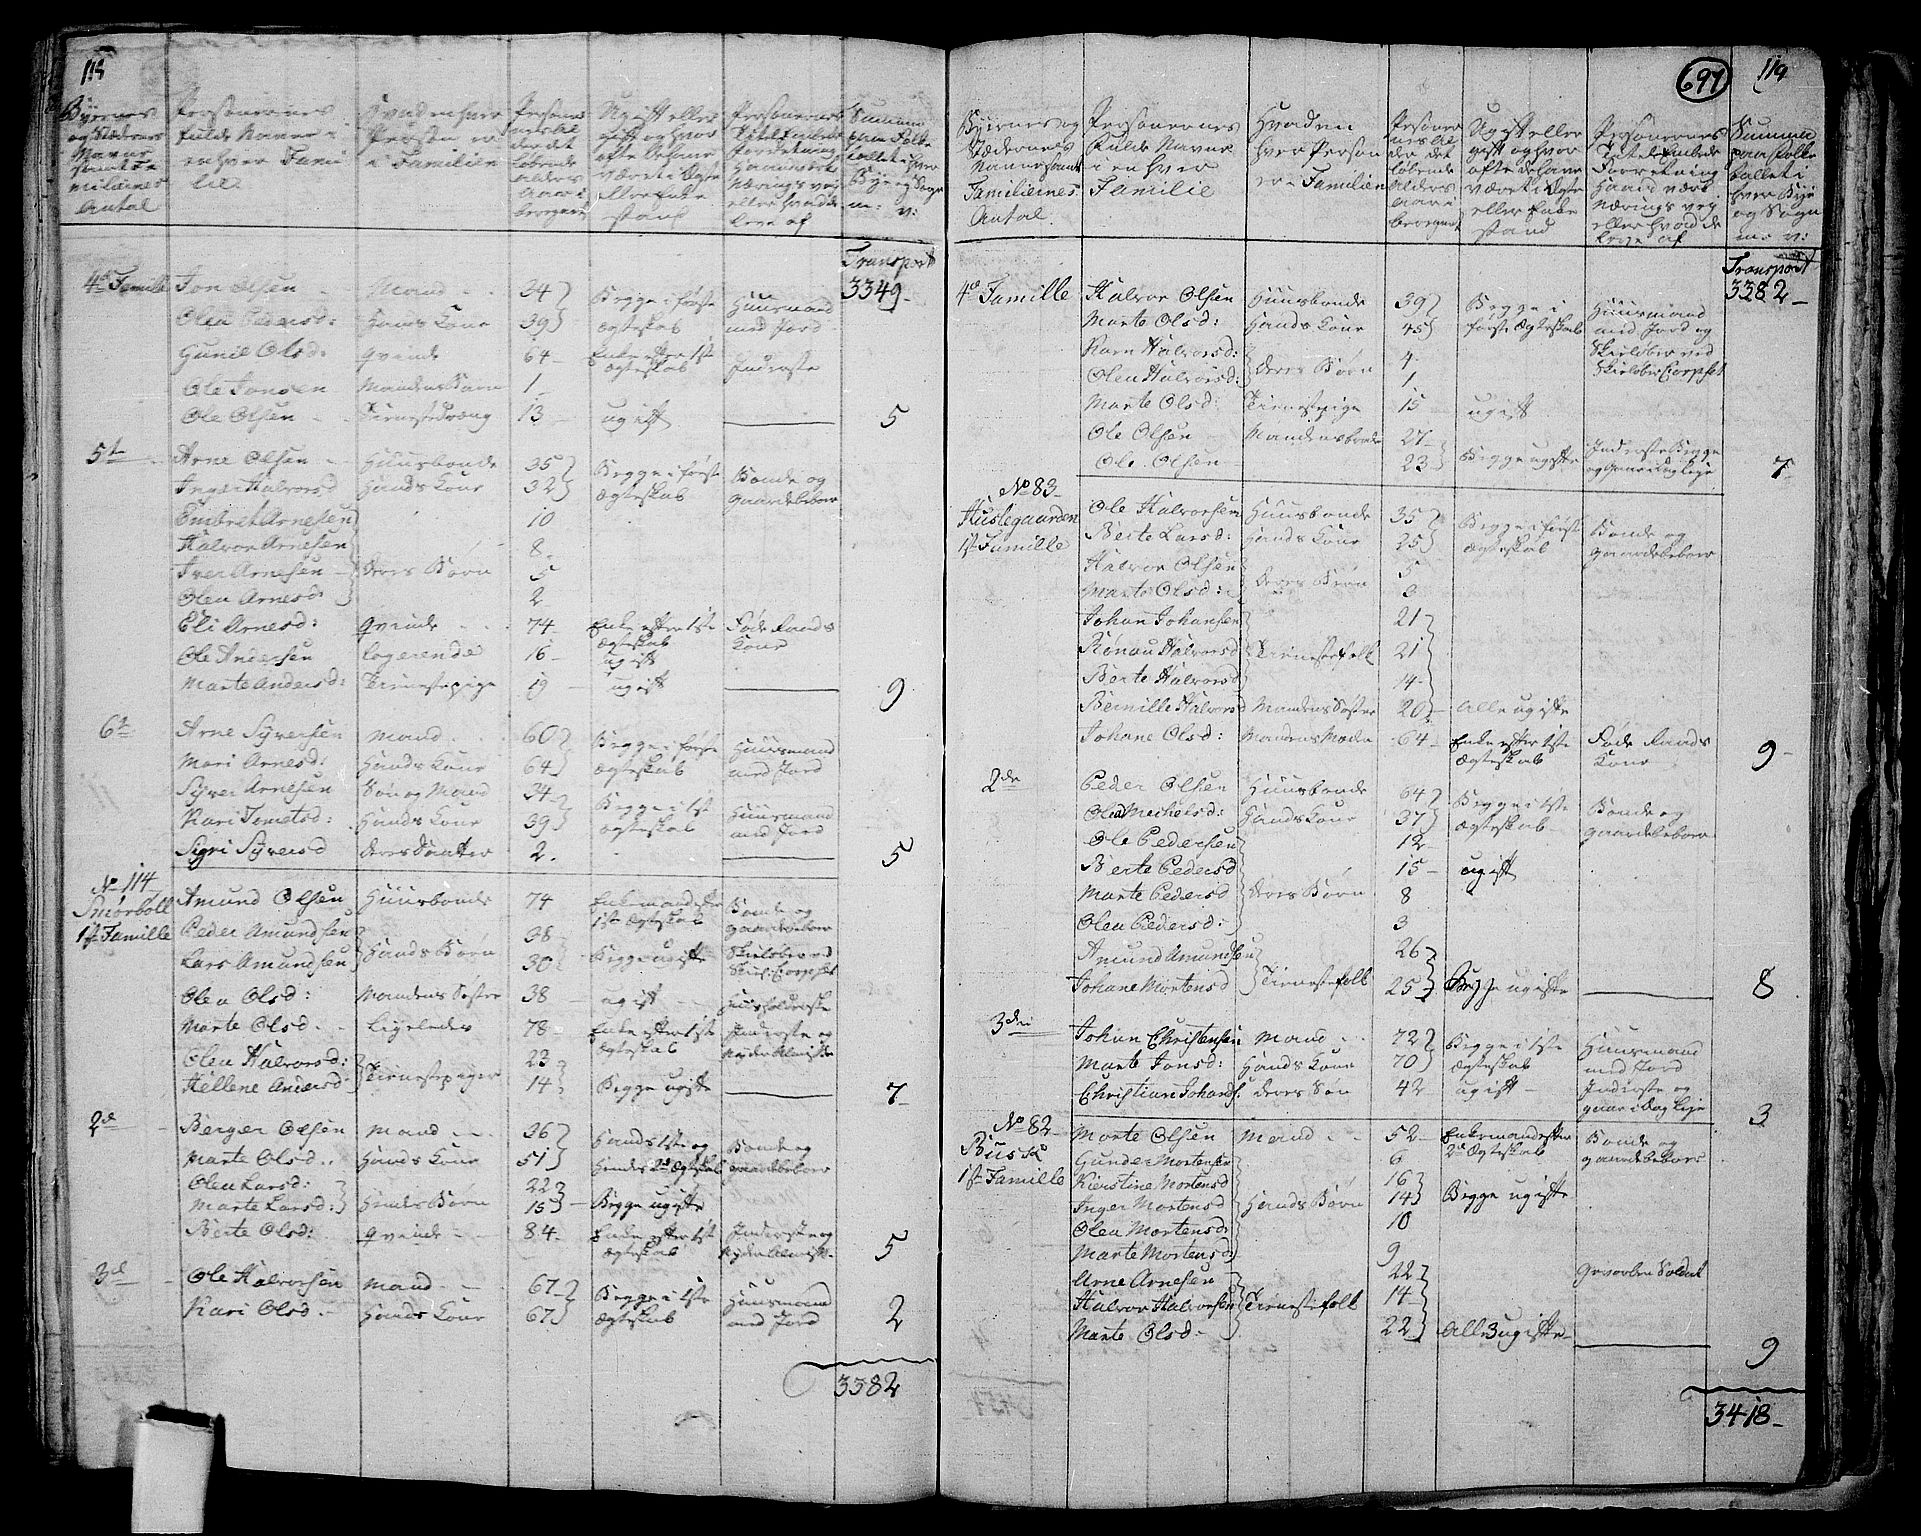 118
Byernes og Stædernes Navne samt Familiernes Antal
Personernes fulde Navne i enhver Familie
Hvad enhver Person er i Familien
Personernes Alder det løbende Alders Aar iberegnet
Ugift eller gift og hvor ofte de have været i Ægte eller Enkestand
Personernes Titel Embede Forretning Haandværk Nærings vej eller hvad de leve af
Summa paa Folketallet i hver Bye og Sogn
Transport
3349
4de Famille Jon Olsen Mand 34 Begge i første Ægteskab Huusmand med Jord
Olea Pedersd: Hands Kone 39
Gunil Olsd: Qvinde 64 Enke efter 1ste Ægteskab Inderste
Ole Jonsen Mandens Barn 1
Ole Olsen Tieneste Dreng 13 ugift 5
5te Arne Olsen Huusbonde 35 Begge i første Ægteskab Bonde og gaardebeboer
Inger Halvorsd Hands Kone 32
Embret Arnesen 10
Halvor Arnesen 8
Iver Arnesen deres Børn 5
Olea Arnesd: 2
Eli Arnesd: Qvinde 74 Enke efter 1ste Ægteskab Føde Raads Kone
Ole Andersen logerende 16 ugift
Marte Andersd: Tienestepige 19 ugift 9
6te Arne Syversen Mand 60 Begge i første Ægteskab Huusmand med Jord
Mari Arnesd: Hands Kone 64
Syver Arnesen Søn og Mand 34 Begge i 1ste Ægteskab Huusmand med Jord
Kari Tometsd: Hands Kone 39
Sigri Syversd deres Daatter 2 5
No 114
Smørboll
1ste Famille Amund Olsen Huusbonde 74 Enkemand efter 1ste Ægteskab Bonde og gaardebeboer
Peder Amundsen Hands Børn 38 Begge ugifte Skieløber ved Skie Corpset
Lars Amundsen 30
Olea Olsd: Mandens Søster 38 ugift Huusholderske
Marte Olsd Ligeledes 78 Enke efter 1ste Ægteskab Inderste og nyder Almisse
Olea Halvorsd: Tienestepiger 23
Hellene Andersd 14 Begge ugifte 7
2de Berger Olsen Mand 36 Hands 1ste og hendes 2det Ægteskab Bonde og gaardebeboer
Marte Olsd Hands Kone 51
Olea Larsd: Hendes Børn 22 Begge ugifte
Marte Larsd: 15
Berte Olsd: Qvinde 84 Enke efter 1st Ægteskab Inderste og nyder Almisse 5
3de Ole Halvorsen Mand 67 Begge i 1ste Ægteskab Huusmand med Jord
Kari Olsd Hands Kone 67 2
3382
697
119
Byernes og Stædernes Navne samt Familiernes Antal.
Personernes Fulde Navne i enhver Familie
Hvad en hver Person er i Familien
Personernes Alder det løbende Alders Aar iberegnet
Ugift eller gift og hvor ofte de have været i Ægte eller Enkestand
Personernes Titel Embede Forretning Haand værk Nærings vej eller hvad de leve af
Summa paa Folketallet i hver Bye og Sogn
Transport
3382
4de Famille Halvor Olsen Huusbonde 39 Begge i første Ægteskab Huusmand med Jord og Skieløber ved Skieløber Corpset
Marte Olsd: Hands Kone 45
Karn Halvorsd: deres Børn 4
Olea Halvorsd: 1
Marte Olsd: Tienestepige 15 ugift
Ole Olsen Mandens brødre 27 Begge ugifte Inderste Begge og Gaar i dag leje
Ole Olsen 23 7
No 83
Huslegaarden
1ste Famille Ole Halvorsen Huusbonde 35 Begge i første Ægteskab Bonde og gaardebeboer
Berte Larsd: Hands Kone 25
Halvor Olsen deres Børn 5
Marte Olsd: 3
Johan Johansen Tienestefolk 21
Rønau Halvorsd 21
Berte Halvorsd 14
Bernille Halvorsd Mandens Søster 20 Alle ugifte
Johane Olsd: Mandens Moder 64 Enke efter 1ste Ægteskab Føde Raads Kone 9
2de Peder Olsen Huusbonde 64 Begge i 1ste Ægteskab Bonde og gaardebeboer
Olea Michelsd: Hands Kone 37
Ole Pedersen deres Børn 12
Berte Pedersd 15 ugift
Marte Pedersd 8
Olea Pedersd: 3
Amund Amundsen Tienestefolk 26
Johane Mortensd 25 Begge ugifte 8
3die Johan Christensen Mand 72 Begge i 1ste Ægteskab Huusmand med Jord
Marte Jonsd: Hands Kone 70
Christian Johans: deres Søn 42 ugift Inderste og gaar i dag leje 3
No 82
Bus
1ste Famille Morte Olsen Mand 52 Enkemand efter 2det Ægteskab Bonde og gaardebeboer
Gunder Mortensen Hands Børn 6
Kierstine Mortensd 16
Inger Mortensd 14 Begge ugifte
Olea Mortensd: 10
Marte Mortensd: 9
Arne Arnesen Tienestefolk 22 Gevorben Soldat
Halvor Halvorsen 14
Marte Olsd 22 Alle 3 ugifte 9
3418